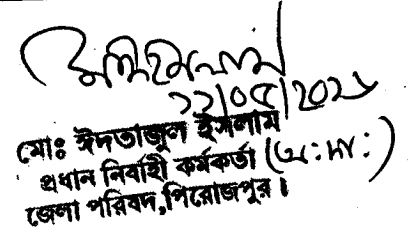 ২২/০৫/২০২৬
মোঃ ঈদতাজুল ইসলাম
প্রধান নির্বাহী কর্মকর্তা (অ:দা:)
জেলা পরিষদ,পিরোজপুর।